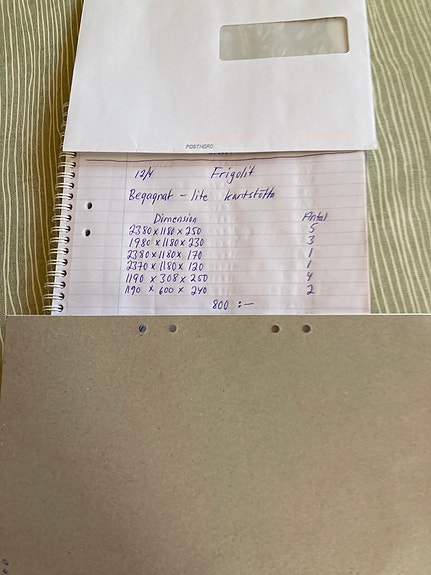 POSTNORD
12/4 Frigolit
Begagnat - lite kantstötta
Dimension Antal
2380 x 1180 x 250 5
1980 x 1180 x 230 3
2380 x 1180 x 170 1
2370 x 1180 x 120 1
1190 x 308 x 250 4
1190 x 600 x 240 2
800 :-